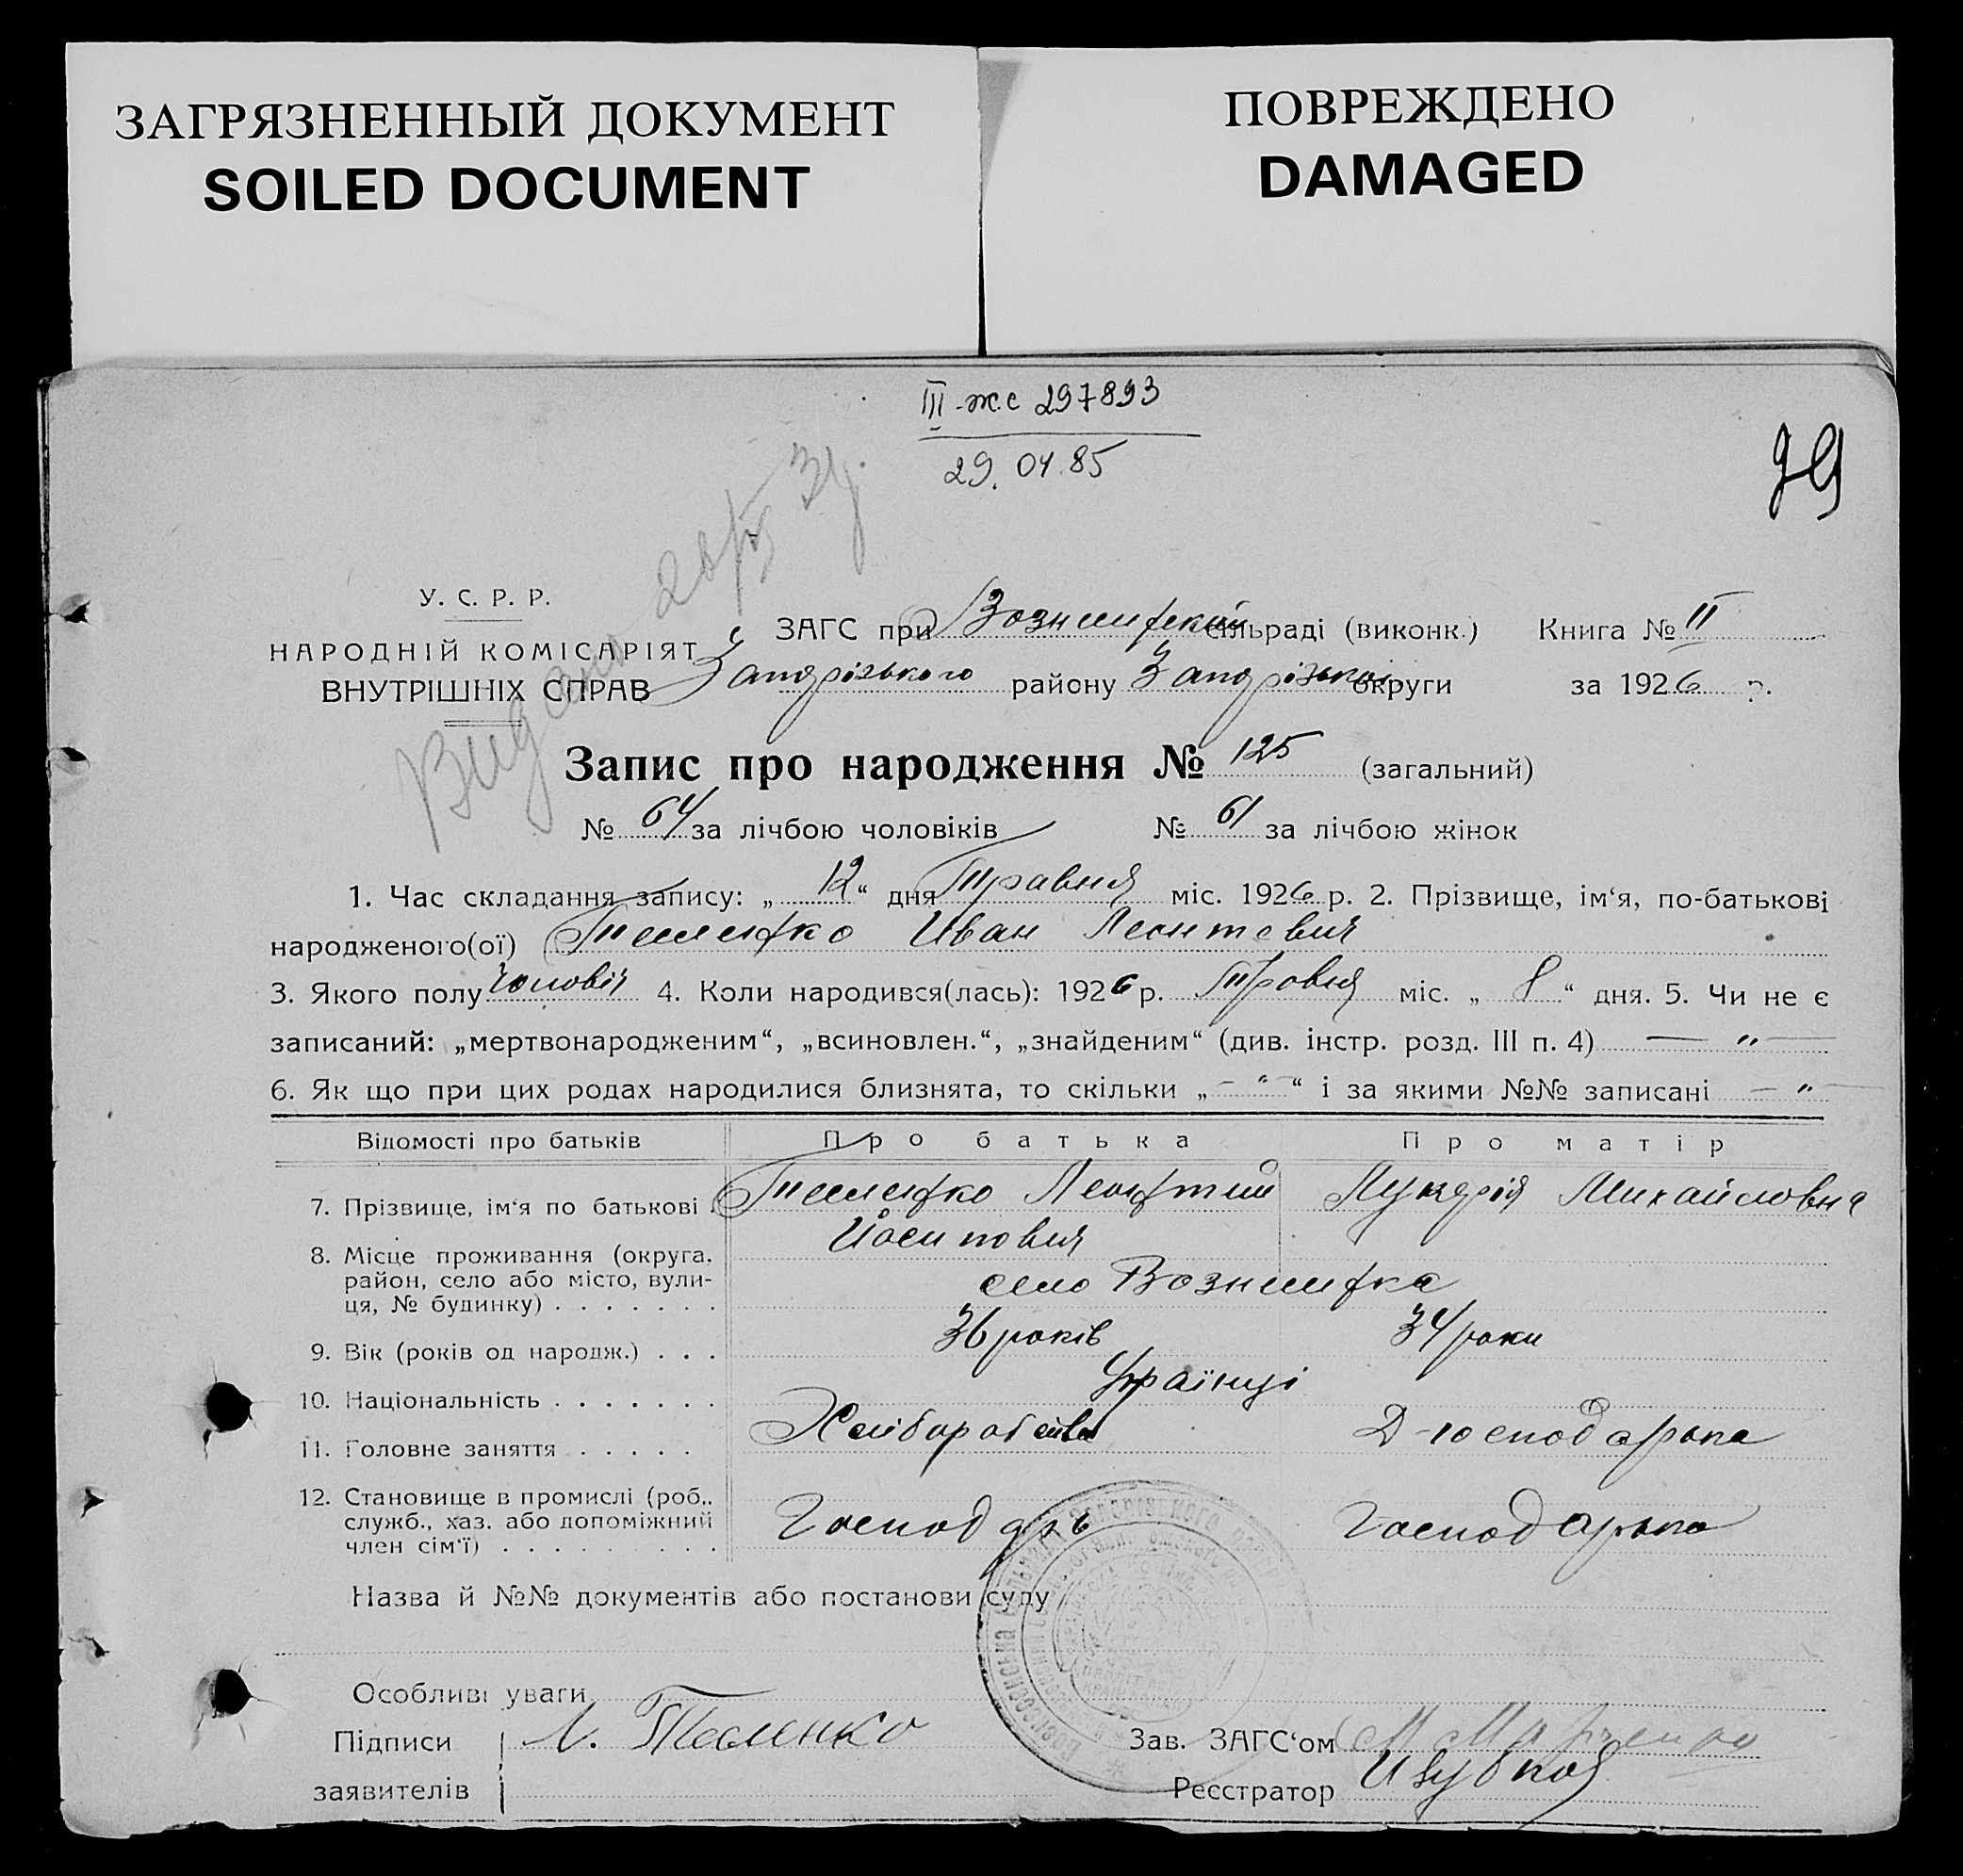 ЗАГРЯЗНЕННЫЙ ДОКУМЕНТ
SOILED DOCUMENT
ПОВРЕЖДЕНО
DAMAGED
III-жс 297893
29.04.85
Видано
У. С. Р. Р.
НАРОДНІЙ КОМІСАРІЯТ
ВНУТРІШНІХ СПРАВ
ЗАГС при сільраді (виконк.) Книга № II
Запорізького району Запорізької округи за 1926 р.
Запис про народження № 125 (загальний)
№ 64 за лічбою чоловіків № 61 за лічбою жінок
1. Час складання запису: „12“ дня Травня міс. 1926 р. 2. Прізвище, ім‘я, по-батькові
народженого(ої) Теленко Иван Леонтевич
3. Якого полу чоловіч 4. Коли народився(лась): 1926 р. Травня міс. „8“ дня. 5. Чи не є
записаний: „мертвонародженим“, „всиновлен.“, „знайденим“ (див. інстр. розд. III п. 4) — „ —
6. Як що при цих родах народилися близнята, то скільки „— " —“ і за якими №№ записані — „ —
Відомості про батьків Про батька Про матір
7. Прізвище, ім‘я по батькові . Теленко Леонтий Лукерія Михайловна
Йосипович
8. Місце проживання (округа,
район, село або місто, вули-
ця, № будинку) . . . . . . . село Вознисенка
9. Вік (років од народж.) . . . 36 років 34 роки
10. Національність . . . . . . . Українці
11. Головне заняття . . . . . Хліборобство Д-господарка
12. Становище в промислі (роб.,
служб., хаз. або допоміжний
член сім‘ї) . . . . . . . . . Господарь Господарка
Назва й №№ документів або постанови суду
Особливі уваги
Підписи Л. Теленко Зав. ЗАГС‘ом
заявителів Реєстратор